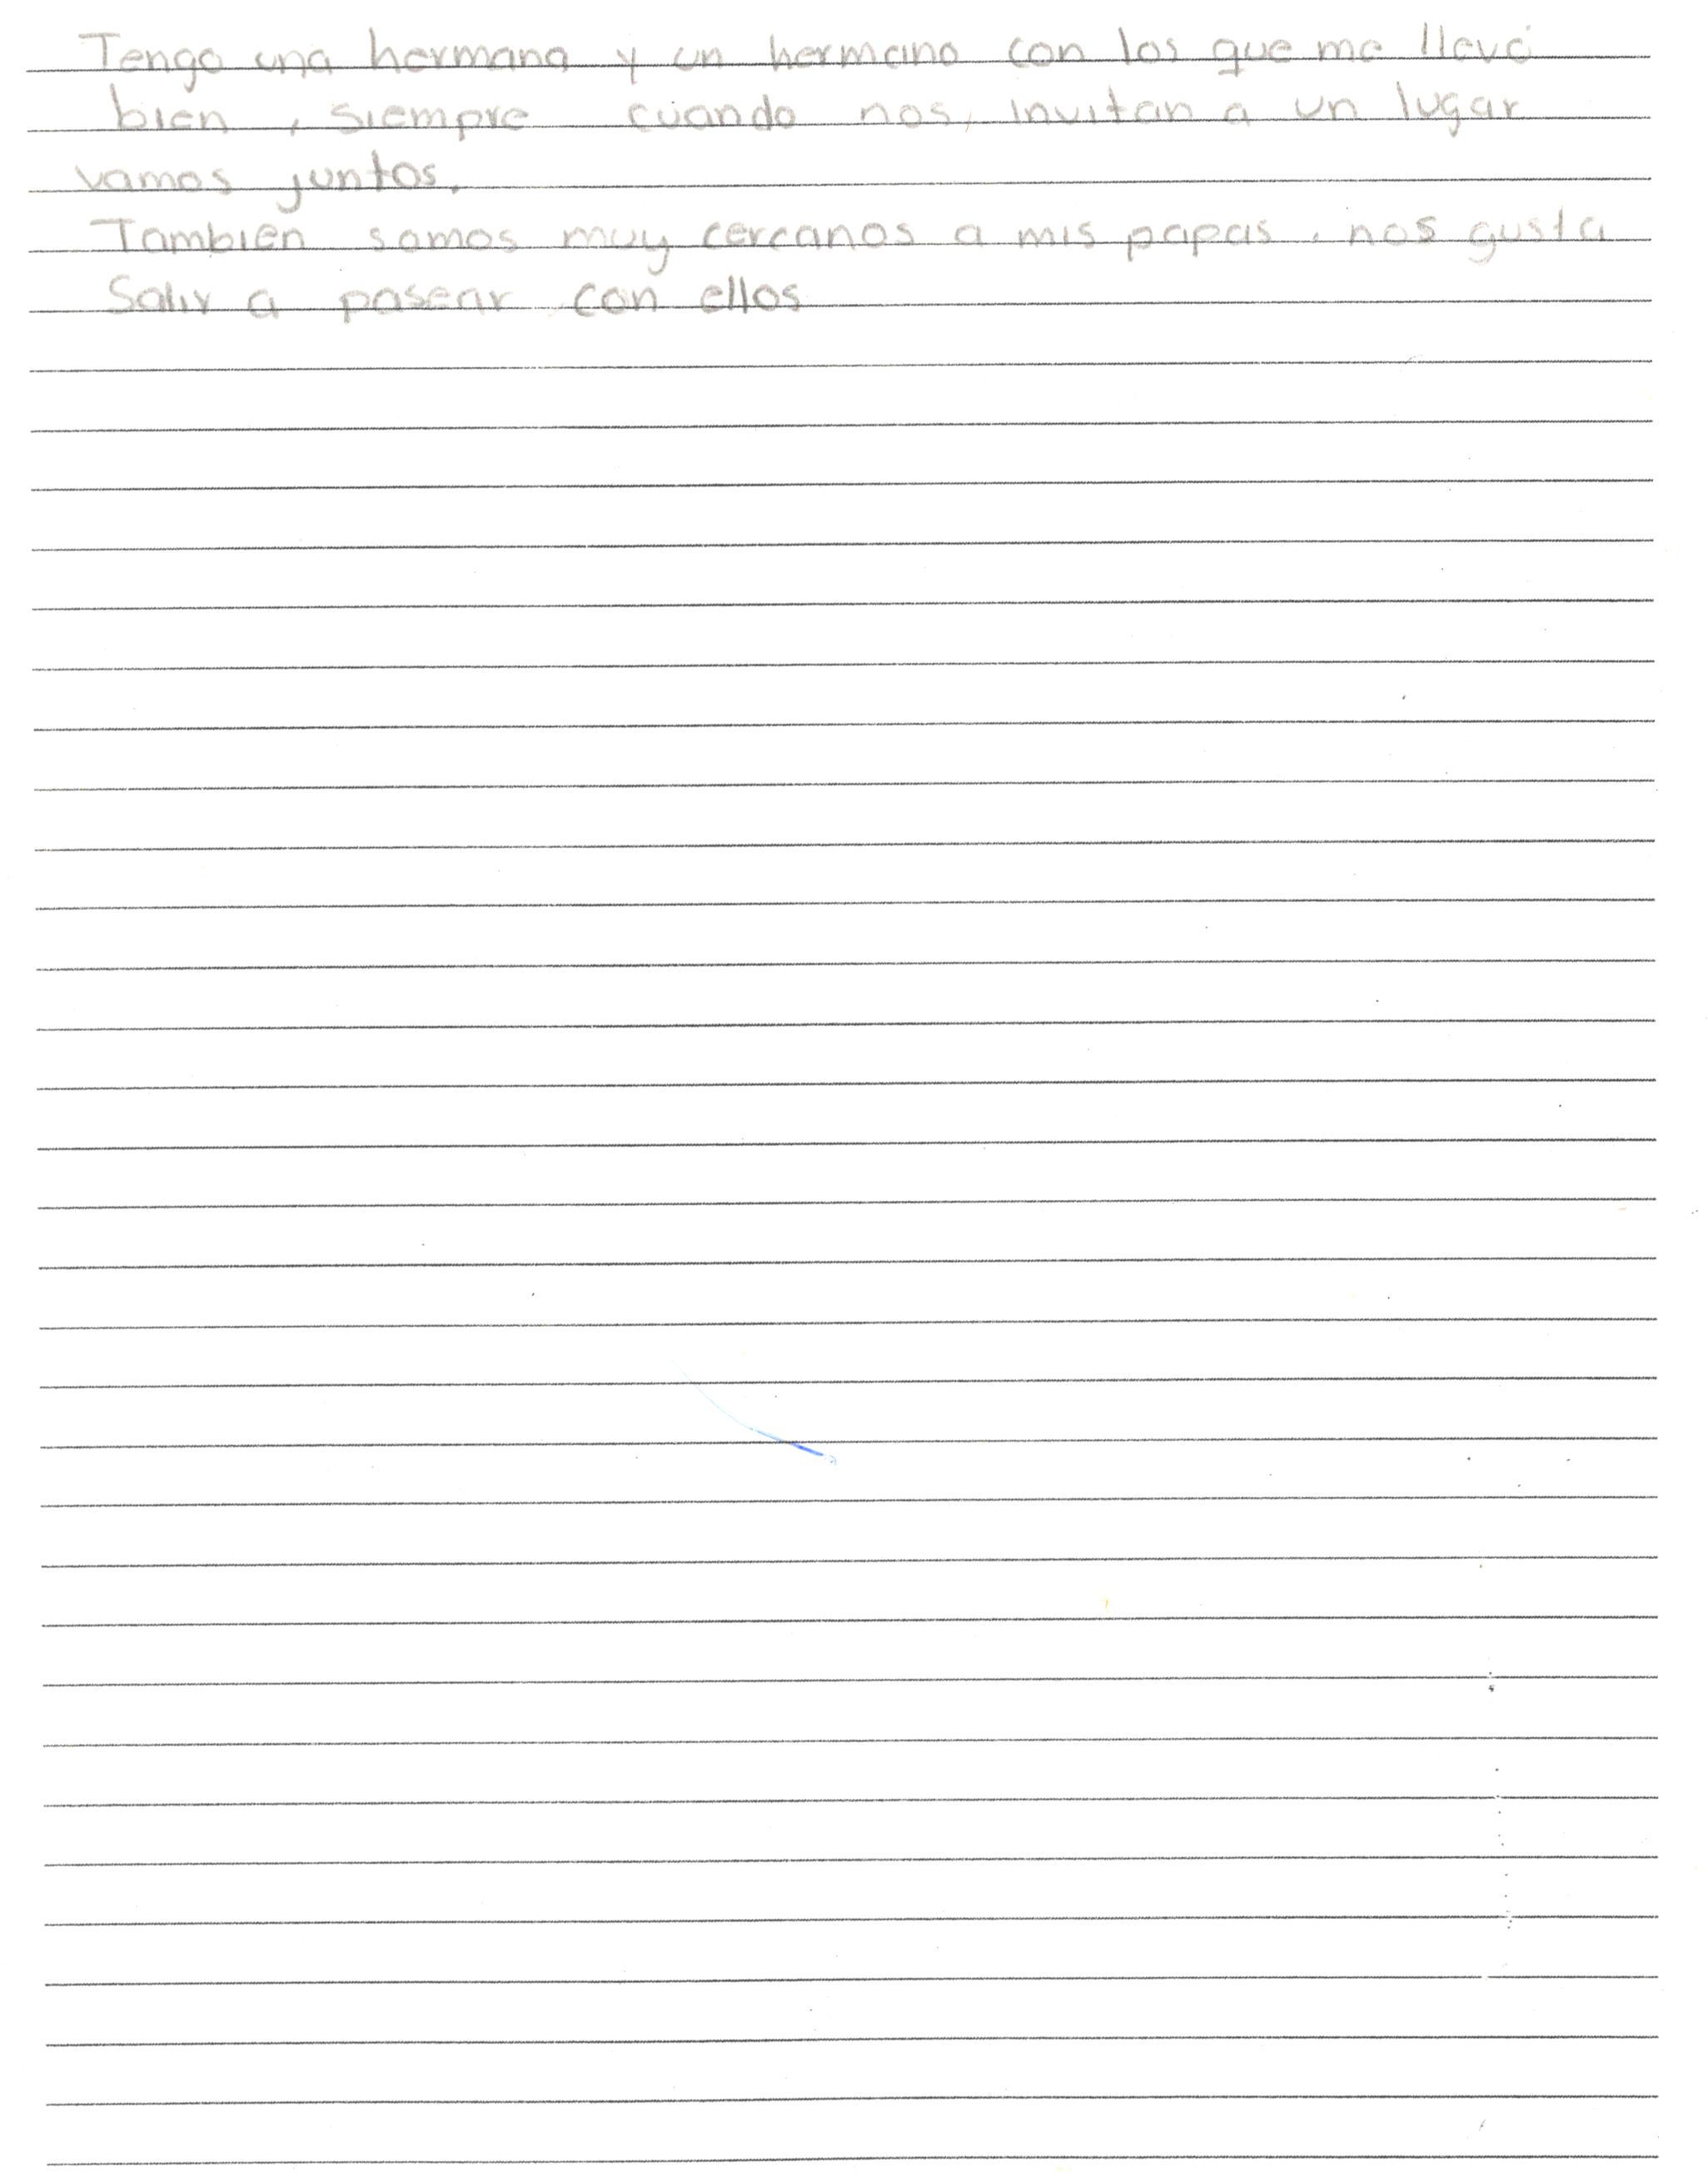 Tengo una hermana y un hermano con los que me llevo
bien, siempre cuando nos, invitan a un lugar
vamos juntos.
Tambien somos muy cercanos a mis papas, nos gusta
Salir a pasear con ellos